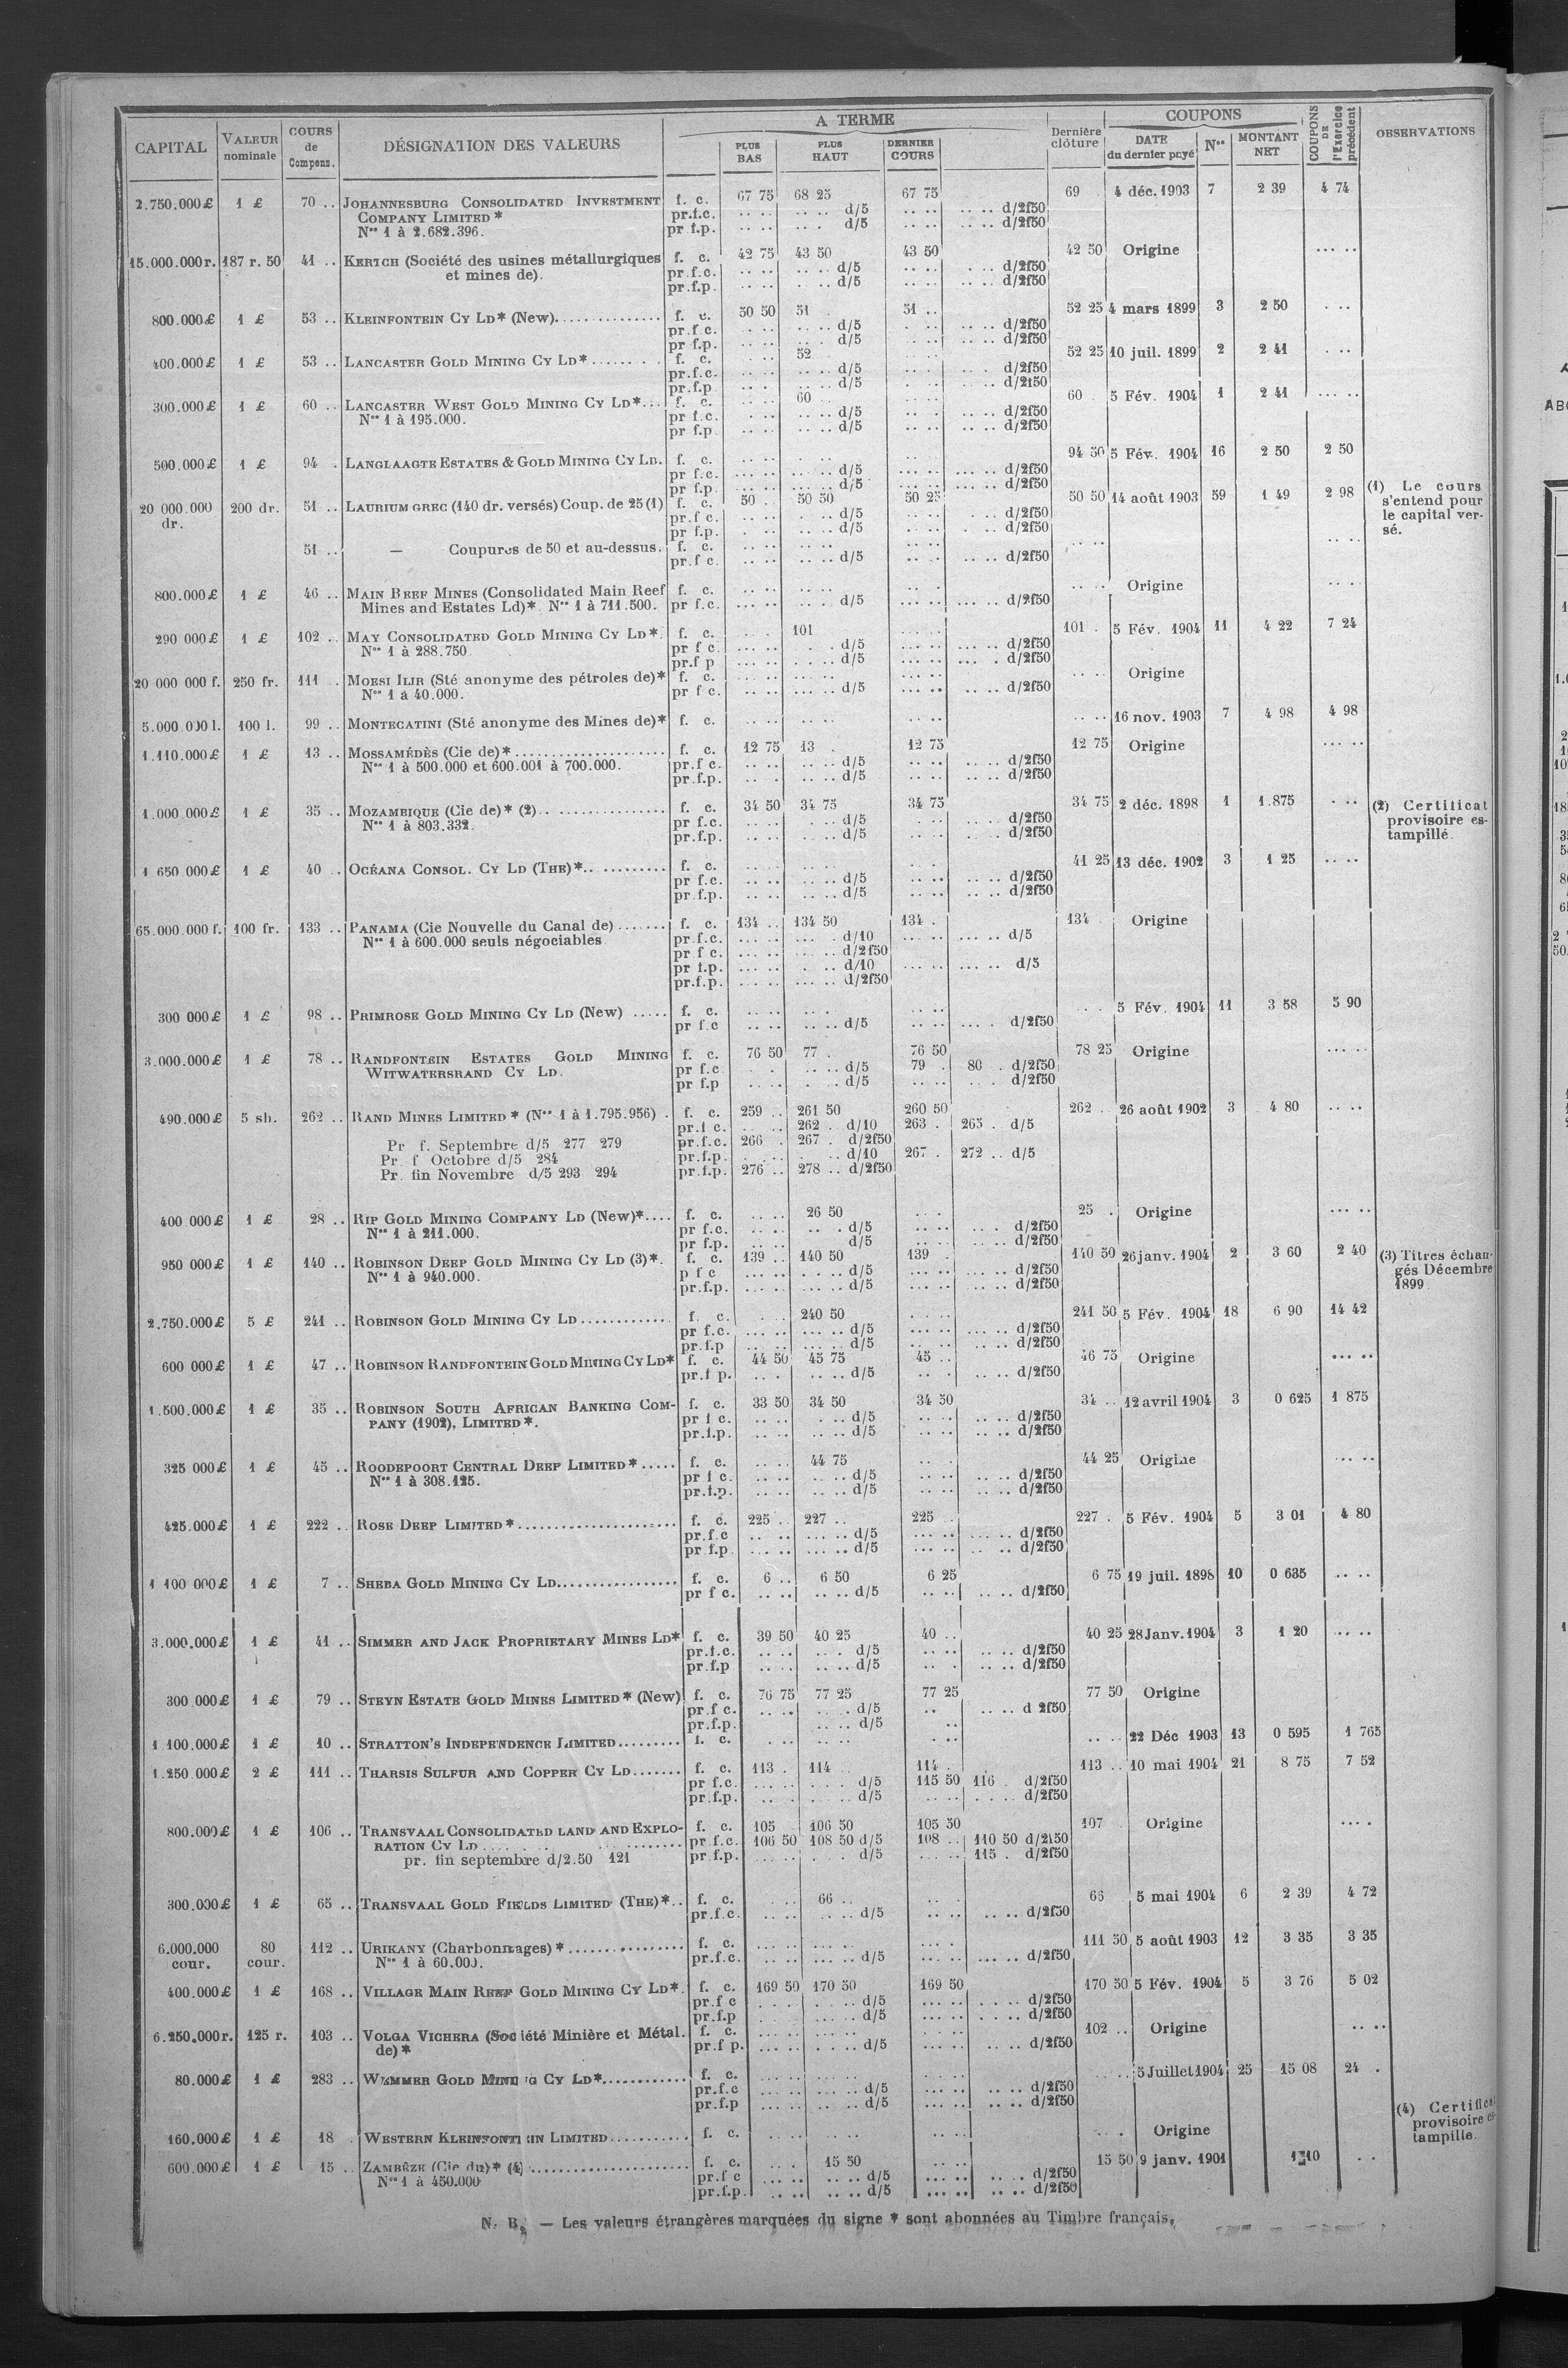 CAPITAL | VALEUR nominale | COURS de Compens. | DÉSIGNATION DES VALEURS | A TERME | Dernière clôture | COUPONS | COUPONS DE l'Exercice précédent | OBSERVATIONS
PLUS BAS | PLUS HAUT | DERNIER COURS | DATE du dernier payé | Nos | MONTANT NET
2.750.000 £ | 1 £ | 70 .. | JOHANNESBURG CONSOLIDATED INVESTMENT | f. c. | 67 75 | 68 25 | 67 75 | 69 . | 4 déc. 1903 | 7 | 2 39 | 4 74
COMPANY LIMITED * | pr.f.c. | .. .. | .. .. d/5 | .. .. | .. .. d/2f50
Nos 1 à 2.682.396. | pr f.p. | .. .. | .. . d/5 | .. .. | .. .. d/2f50
15.000.000 r. | 187 r. 50 | 41 .. | KERTCH (Société des usines métallurgiques | f. c. | 42 75 | 43 50 | 43 50 | 42 50 | Origine | ... ..
et mines de). | pr.f.c. | .. .. | .. .. d/5 | .. .. | . .. d/2f50
pr.f.p. | .. .. | . .. d/5 | .. .. | .. .. d/2f50
800.000 £ | 1 £ | 53 .. | KLEINFONTEIN CY LD * (New) | f. c. | 50 50 | 51 . | 51 .. | 52 25 | 4 mars 1899 | 3 | 2 50 | . ..
pr.f c. | .. .. d/5 | d/2f50
pr f.p. | d/5 | d/2f50
400.000 £ | 1 £ | 53 .. | LANCASTER GOLD MINING CY LD * | f. c. | 52 | 52 25 | 10 juil. 1899 | 2 | 2 41 | . ..
pr.f.c. | d/5 | d/2f50
pr.f.p | d/5 | d/2f50
300.000 £ | 1 £ | 60 .. | LANCASTER WEST GOLD MINING CY LD * | f. c. | 60 | 60 . | 5 Fév. 1904 | 1 | 2 41 | ... ..
Nos 1 à 195.000. | pr f.c. | d/5 | d/2f50
pr f.p | d/5 | d/2f50
500.000 £ | 1 £ | 94 . | LANGLAAGTE ESTATES & GOLD MINING CY LD. | f. c. | 94 50 | 5 Fév. 1904 | 16 | 2 50 | 2 50
pr f.c. | d/5 | d/2f50
pr f.p. | d/5 | d/2f50
20 000.000 dr. | 200 dr. | 51 .. | LAURIUM GREC (140 dr. versés) Coup. de 25 (1) | f. c. | 50 . | 50 50 | 50 25 | 50 50 | 14 août 1903 | 59 | 1 49 | 2 98 | (1) Le cours s'entend pour le capital versé.
pr.f c. | d/5 | d/2f50
pr f.p. | d/5 | d/2f50
51 .. | — Coupures de 50 et au-dessus. | f. c.
pr.f c. | d/5 | d/2f50
800.000 £ | 1 £ | 46 .. | MAIN REEF MINES (Consolidated Main Reef | f. c. | Origine
Mines and Estates Ld) *. Nos 1 à 711.500. | pr f.c. | d/5 | d/2f50
290 000 £ | 1 £ | 102 .. | MAY CONSOLIDATED GOLD MINING CY LD *. | f. c. | 101 | 101 . | 5 Fév. 1904 | 11 | 4 22 | 7 24
Nos 1 à 288.750 | pr f c. | d/5 | d/2f50
pr.f p | d/5 | d/2f50
20 000 000 f. | 250 fr. | 111 .. | MORSI ILIR (Sté anonyme des pétroles de) * | f. c. | Origine
Nos 1 à 40.000. | pr f c. | d/5 | d/2f50
5.000.000 l. | 100 l. | 99 .. | MONTECATINI (Sté anonyme des Mines de) * | f. c. | 16 nov. 1903 | 7 | 4 98 | 4 98
1.110.000 £ | 1 £ | 13 .. | MOSSAMÉDÈS (Cie de) * | f. c. | 12 75 | 13 . | 12 75 | 12 75 | Origine | ... ..
Nos 1 à 500.000 et 600.001 à 700.000. | pr.f c. | d/5 | d/2f50
pr.f.p. | d/5 | d/2f50
1.000 000 £ | 1 £ | 35 .. | MOZAMBIQUE (Cie de) * (2) | f. c. | 34 50 | 34 75 | 34 75 | 34 75 | 2 déc. 1898 | 1 | 1.875 | . .. | (2) Certificat provisoire estampillé.
Nos 1 à 803.332. | pr f.c. | d/5 | d/2f50
pr.f.p. | d/5 | d/2f50
1 650 000 £ | 1 £ | 40 .. | OCÉANA CONSOL. CY LD (THE) * | f. c. | 41 25 | 13 déc. 1902 | 3 | 1 25 | .. ..
pr f.c. | d/5 | d/2f50
pr.f.p. | d/5 | d/2f50
65.000.000 f. | 100 fr. | 133 .. | PANAMA (Cie Nouvelle du Canal de) | f. c. | 134 .. | 134 50 | 134 . | 134 . | Origine
Nos 1 à 600.000 seuls négociables | pr.f.c. | d/10 | d/5
pr f c. | d/2f50
pr f.p. | d/10 | d/5
pr.f.p. | d/2f50
300 000 £ | 1 £ | 98 .. | PRIMROSE GOLD MINING CY LD (New) | f. c. | 5 Fév. 1904 | 11 | 3 58 | 5 90
pr f.c | d/5 | d/2f50
3.000.000 £ | 1 £ | 78 .. | RANDFONTEIN ESTATES GOLD MINING | f. c. | 76 50 | 77 . | 76 50 | 78 25 | Origine | ... ..
WITWATERSRAND CY LD. | pr f.c | d/5 | 79 . | 80 . d/2f50
pr f.p | d/5 | d/2f50
490.000 £ | 5 sh. | 262 .. | RAND MINES LIMITED * (Nos 1 à 1.795.956) | f. c. | 259 .. | 261 50 | 260 50 | 262 .. | 26 août 1902 | 3 | 4 80 | .. ..
pr.f c. | 262 . d/10 | 263 . | 265 . d/5
Pr f. Septembre d/5 277 279 | pr.f.c. | 266 . | 267 . d/2f50
Pr. f Octobre d/5 284 | pr.f.p. | d/10 | 267 . | 272 .. d/5
Pr. fin Novembre d/5 293 294 | pr.f.p. | 276 .. | 278 .. d/2f50
400.000 £ | 1 £ | 28 .. | RIP GOLD MINING COMPANY LD (New) * | f. c. | 26 50 | 25 . | Origine | ... ..
Nos 1 à 211.000. | pr f.c. | d/5 | d/2f50
pr f.p. | d/5 | d/2f50
950 000 £ | 1 £ | 140 .. | ROBINSON DEEP GOLD MINING CY LD (3) *. | f. c. | 139 .. | 140 50 | 139 . | 140 50 | 26 janv. 1904 | 2 | 3 60 | 2 40 | (3) Titres échangés Décembre 1899.
Nos 1 à 940.000. | p f c | d/5 | d/2f50
pr.f.p. | d/5 | d/2f50
2.750.000 £ | 5 £ | 241 .. | ROBINSON GOLD MINING CY LD | f. c. | 240 50 | 241 50 | 5 Fév. 1904 | 18 | 6 90 | 14 42
pr f.c. | d/5 | d/2f50
pr.f.p | d/5 | d/2f50
600 000 £ | 1 £ | 47 .. | ROBINSON RANDFONTEIN GOLD MINING CY LD * | f. c. | 44 50 | 45 75 | 45 .. | 46 75 | Origine | ... ..
pr.f p. | d/5 | d/2f50
1.500.000 £ | 1 £ | 35 .. | ROBINSON SOUTH AFRICAN BANKING COM- | f. c. | 33 50 | 34 50 | 34 50 | 34 .. | 12 avril 1904 | 3 | 0 625 | 1 875
PANY (1902), LIMITED *. | pr f c. | d/5 | d/2f50
pr.f.p. | d/5 | d/2f50
325 000 £ | 1 £ | 45 .. | ROODEPOORT CENTRAL DEEP LIMITED * | f. c. | 44 75 | 44 25 | Origine
Nos 1 à 308.125. | pr f c. | d/5 | d/2f50
pr.f.p. | d/5 | d/2f50
425.000 £ | 1 £ | 222 .. | ROSE DEEP LIMITED * | f. c. | 225 .. | 227 .. | 225 .. | 227 . | 5 Fév. 1904 | 5 | 3 01 | 4 80
pr.f.c | d/5 | d/2f50
pr f.p. | d/5 | d/2f50
1 100 000 £ | 1 £ | 7 .. | SHEBA GOLD MINING CY LD | f. c. | 6 .. | 6 50 | 6 25 | 6 75 | 19 juil. 1898 | 10 | 0 635 | .. ..
pr f c. | d/5 | d/2f50
3.000.000 £ | 1 £ | 41 .. | SIMMER AND JACK PROPRIETARY MINES LD * | f. c. | 39 50 | 40 25 | 40 .. | 40 25 | 28 Janv. 1904 | 3 | 1 20 | .. ..
pr.f.c. | d/5 | d/2f50
pr.f.p | d/5 | d/2f50
300.000 £ | 1 £ | 79 .. | STEYN ESTATE GOLD MINES LIMITED * (New) | f. c. | 76 75 | 77 25 | 77 25 | 77 50 | Origine
pr.f c. | d/5 | d 2f50
pr.f.p. | d/5
1 100.000 £ | 1 £ | 10 .. | STRATTON'S INDEPENDENCE LIMITED | f. c. | 22 Déc 1903 | 13 | 0 595 | 1 765
1.250.000 £ | 2 £ | 111 .. | THARSIS SULFUR AND COPPER CY LD | f. c. | 113 . | 114 .. | 114 . | 113 .. | 10 mai 1904 | 21 | 8 75 | 7 52
pr f.c. | d/5 | 115 50 | 116 . d/2f50
pr.f.p. | d/5 | d/2f50
800.000 £ | 1 £ | 106 .. | TRANSVAAL CONSOLIDATED LAND AND EXPLO- | f. c. | 105 | 106 50 | 105 50 | 107 | Origine
RATION CY LD | pr.f.c. | 106 50 | 108 50 d/5 | 108 .. | 110 50 d/2f50
pr. fin septembre d/2.50 121 | pr.f.p. | d/5 | 115 . d/2f50
300.000 £ | 1 £ | 65 .. | TRANSVAAL GOLD FIELDS LIMITED (THE) * | f. c. | 66 .. | 66 | 5 mai 1904 | 6 | 2 39 | 4 72
pr.f.c. | d/5 | d/2f50
6.000.000 cour. | 80 cour. | 112 .. | URIKANY (Charbonnages) * | f. c. | 111 50 | 5 août 1903 | 12 | 3 35 | 3 35
Nos 1 à 60.000. | pr.f.c. | d/5 | d/2f50
400.000 £ | 1 £ | 168 .. | VILLAGE MAIN REEF GOLD MINING CY LD *. | f. c. | 169 50 | 170 50 | 169 50 | 170 50 | 5 Fév. 1904 | 5 | 3 76 | 5 02
pr.f c | d/5 | d/2f50
pr.f.p | d/5 | d/2f50
6.250.000 r. | 125 r. | 103 .. | VOLGA VICHERA (Société Minière et Métal. | f. c. | 102 .. | Origine
de) * | pr.f p. | d/5 | d/2f50
80.000 £ | 1 £ | 283 .. | WEMMER GOLD MINING CY LD * | f. c. | 5 Juillet 1904 | 25 | 15 08 | 24 .
pr.f.c | d/5 | d/2f50
pr.f.p | d/5 | d/2f50
160.000 £ | 1 £ | 18 . | WESTERN KLEINFONTEIN LIMITED | f. c. | Origine | (4) Certificat provisoire estampille.
600.000 £ | 1 £ | 15 .. | ZAMBÈZE (Cie du) * (4) | f. c. | 15 50 | 15 50 | 9 janv. 1901 | 1 10
Nos 1 à 450.000 | pr.f c | d/5 | d/2f50
pr.f.p. | d/5 | d/2f50
N. B. — Les valeurs étrangères marquées du signe * sont abonnées au Timbre français.